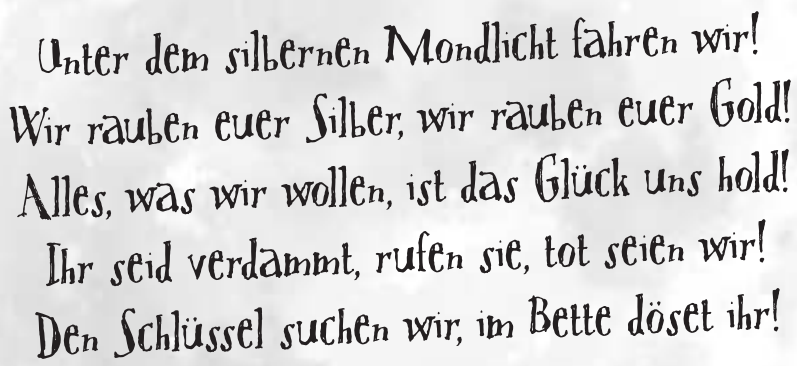 Unter dem silbernen Mondlicht fahren wir!
Wir rauben euer Silber, wir rauben euer Gold!
Alles, was wir wollen, ist das Glück uns hold!
Ihr seid verdammt, rufen sie, tot seien wir!
Den Schlüssel suchen wir, im Bette döset ihr!